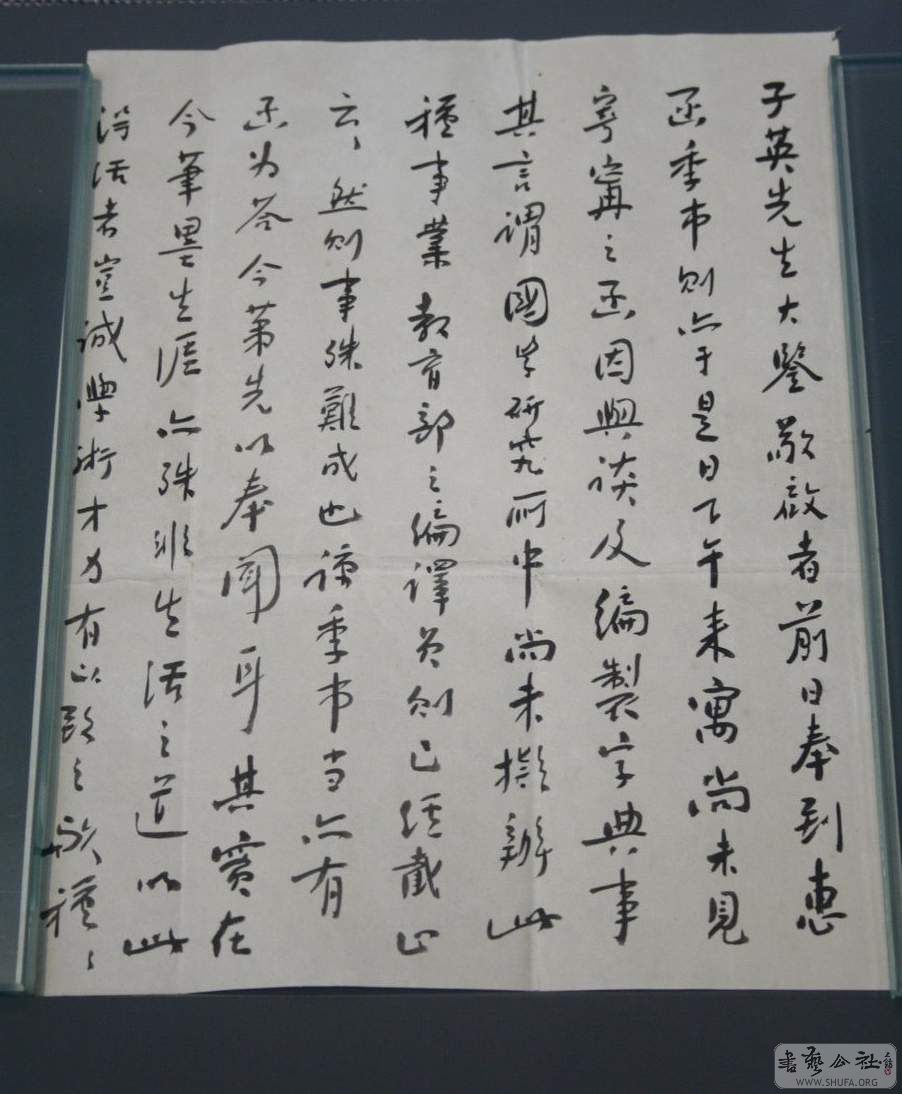 子英先生大鑒敬啟者前日奉到惠
函季巿則亦于是日下午来寓尚未見
寄甯之函因與談及編製字典事
其言謂國学研究所中尚未擬辦此
種事業教育部之編譯员則已經截止
云〻然則事殊難成也諒季巿當亦有
函为答今苐先以奉聞耳其實在
今筆墨生涯亦殊非生活之道以此
得活者豈誠學術才力有以致之歟種〻
書藝公社
WWW.SHUFA.ORG